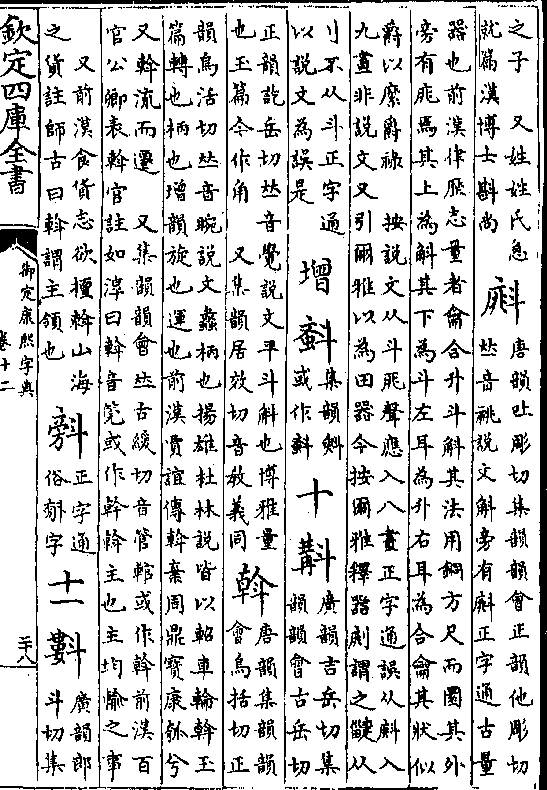 之子　又姓姓氏急
就篇漢博士斟尚
㪵
唐韻吐彫切集韻韻會正韻他彫切
𠀤音祧說文斛旁有㪵正字通古量
器也前漢律歷志量者龠合升斗斛其法用銅方尺而圜其外
旁有庣焉其上為斛其下為斗左耳為升右耳為合龠其狀似
爵以縻爵祿　按說文从斗庣聲應入八畫正字通誤从㪵入
九畫非說文又引爾雅以為田器今按爾雅釋器謂之疀从
刂不从斗正字通
以說文為誤是
增
集韻
或作
十斠
廣韻吉岳切集
韻韻會古岳切
正韻訖岳切𠀤音覺說文平斗斛也博雅量
也玉篇今作角　又集韻居效切音教義同
斡
唐韻集韻韻
會烏括切正
韻烏活切𠀤音腕說文蠡柄也揚雄杜林說皆以軺車輪斡玉
篇轉也柄也增韻旋也運也前漢賈誼傳斡棄周鼎寶康瓠兮
又斡流而遷　又集韻韻會𠀤古緩切音管輨或作斡前漢百
官公卿表斡官註如淳曰斡音筦或作幹斡主也主均輸之事
又前漢食貨志欲擅斡山海
之貨註師古曰斡謂主領也
正字通
俗字
十一㪹
廣韻郎
斗切集
欽定四庫全書
御定康熙字典
卷十二
三十八